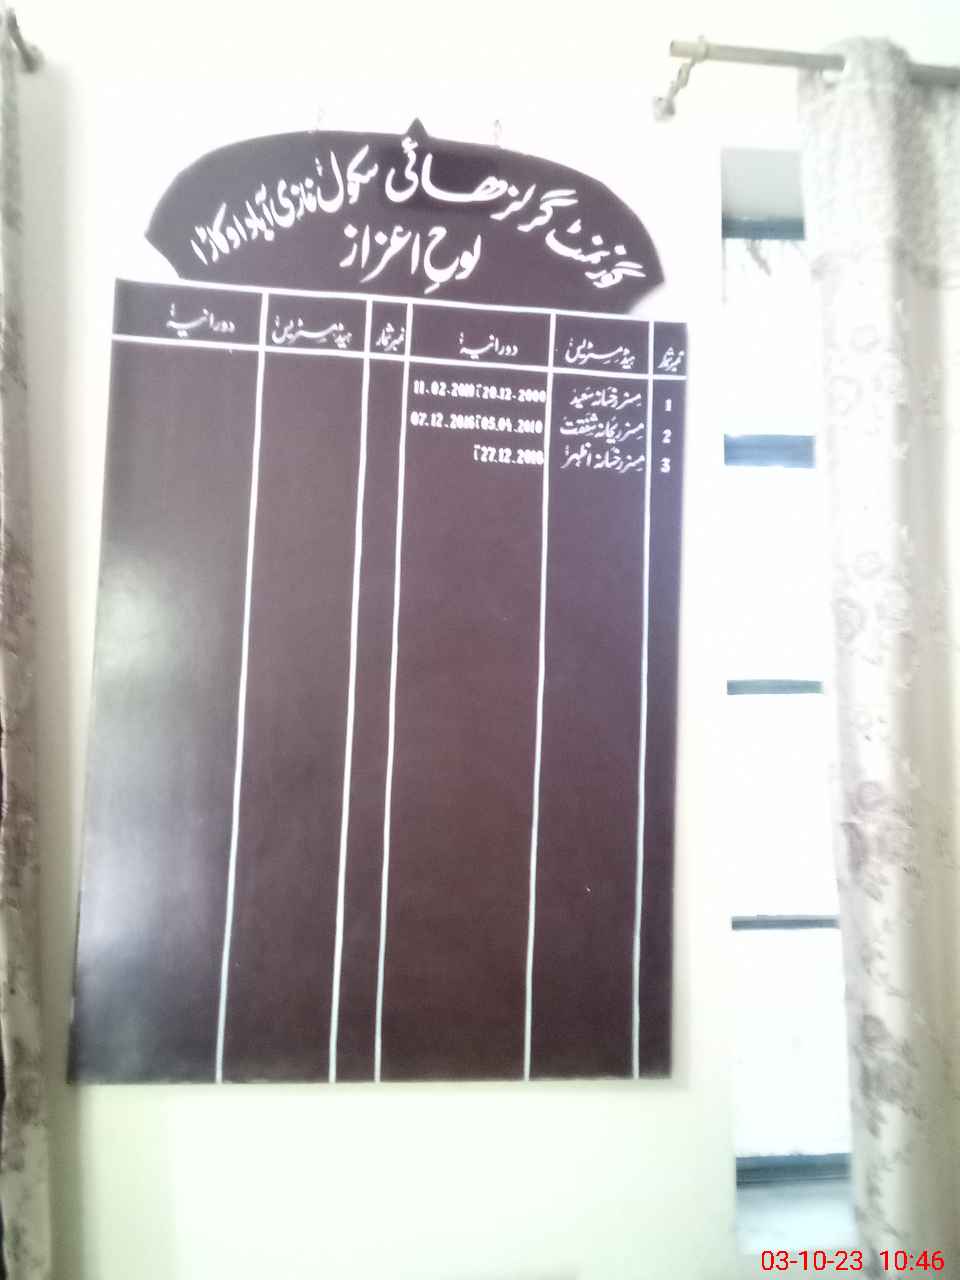 گورنمنٹ گرلز ھائی سکول غازی آباد اوکاڑا
لوحِ اعزاز
نمبر شمار ہیڈ مسٹریس دورانیہ نمبر شمار ہیڈ مسٹریس دورانیہ
1 مسز رخسانہ سعید 20.12.2000 تا 11.02.2010
2 مسز ریحانہ شفقت 05.04.2010 تا 07.12.2016
3 مسز رخسانہ اظہر 27.12.2016 تا
03-10-23 10:46